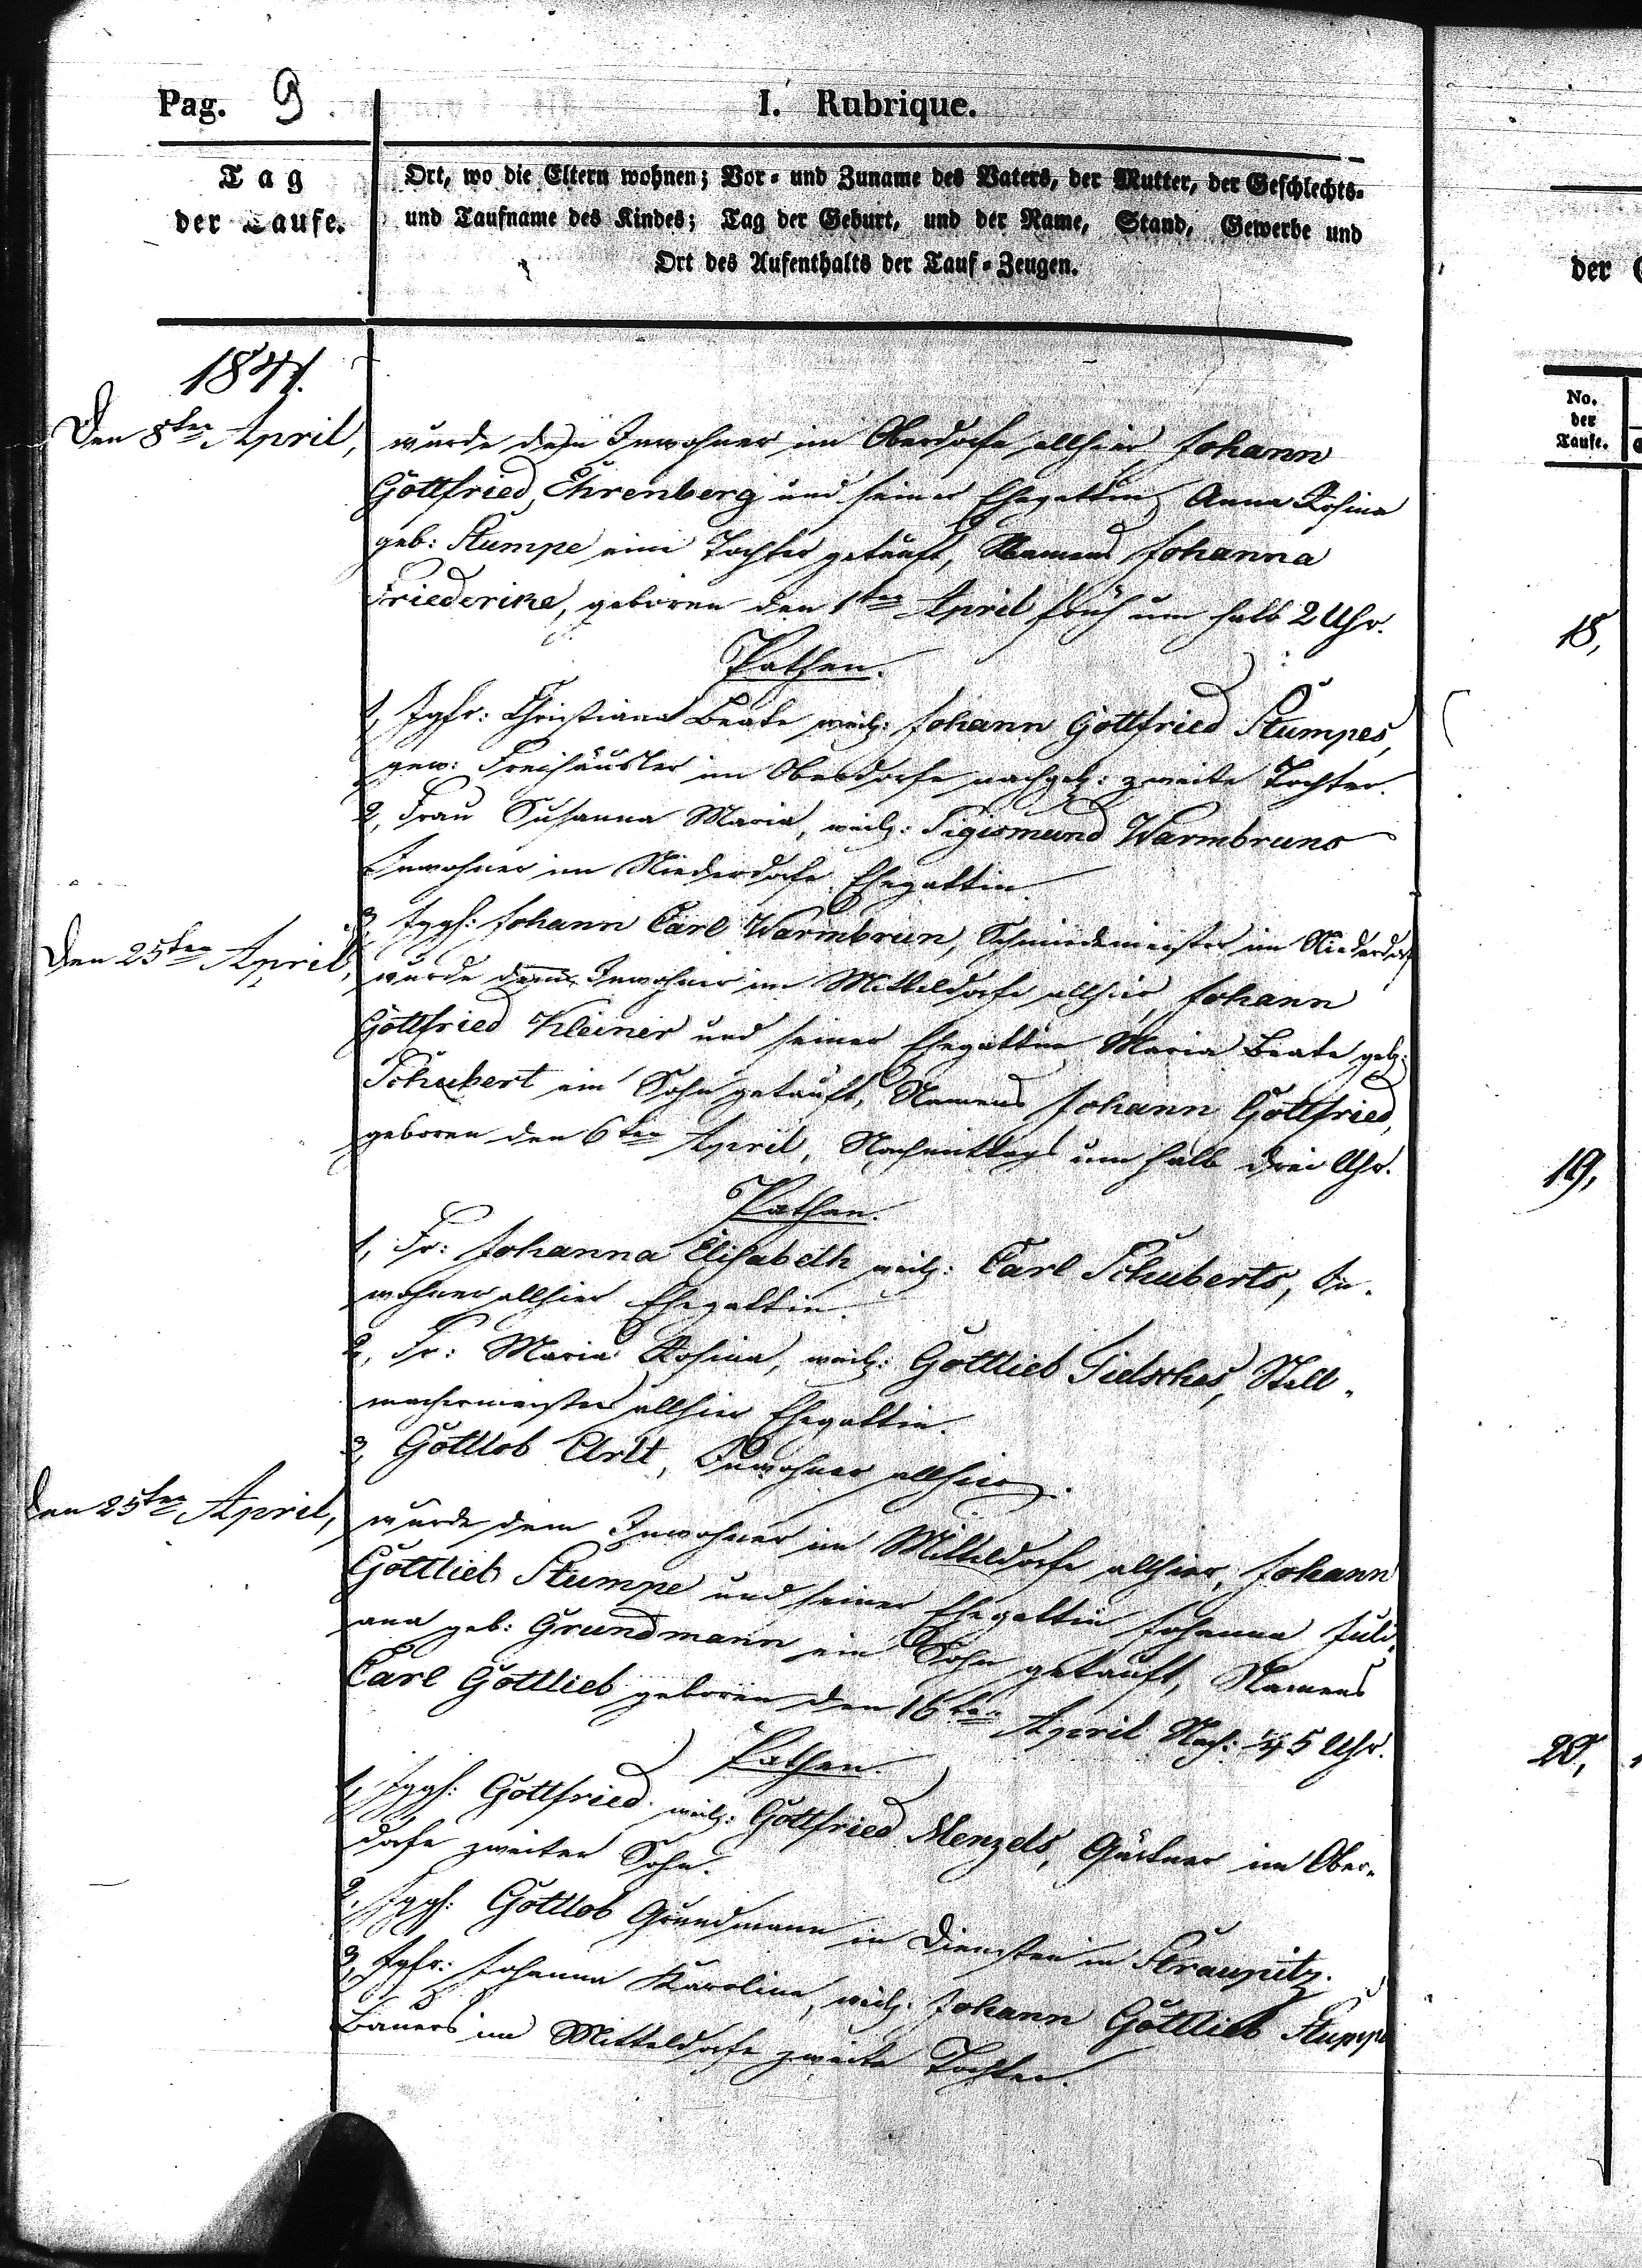 Pag. 9
I. Rubrique.
Tag
der Taufe.
Ort, wo die Eltern wohnen; Vor- und Zuname des Vaters, der Mutter, der Geschlechts-
und Taufname des Kindes; Tag der Geburt, und der Name, Stand, Gewerbe und
Ort des Aufenthalts der Tauf-Zeugen.
1841.
Den 8ten April,
wurde dem Inwohner im Oberdorfe allhier Johann
Gottfried Ehrenberg und seiner Ehegattin Anna Rosina
geb: Stumpe eine Tochter getauft, Namens Johanna
Friederike, geboren den 1ten April früh um halb 2 Uhr.
Pathen.
1, Jgfr: Christiana Beate weil: Johann Gottfried Stumpes,
gew: Freihäusler im Oberdorfe nachgel: zweite Tochter.
2, Frau Susanna Maria, weil: Sigismund Warmbruns
Inwohner im Niederdorfe Ehegattin
3, Jggs: Johann Carl Warmbrun, Schmiedemeister im Niederdorf
Den 25ten April,
wurde dem Inwohner im Mitteldorfe allhier, Johann
Gottfried Kleiner und seiner Ehegattin Maria Beate geb:
Schubert ein Sohn getauft, Namens Johann Gottfried,
geboren den 6ten April, Nachmittags um halb drei Uhr.
Pathen.
1, Fr: Johanna Elisabeth weil: Carl Schuberts, In-
wohner allhier Ehegattin
2, Fr: Maria Rosina, weil: Gottlieb Tielsches, Stell-
machermeister allhier Ehegattin.
3, Gottlob Arlt, Inwohner allhier.
Den 25ten April,
wurde dem Inwohner im Mitteldorfe allhier, Johann
Gottlieb Stumpe und seiner Ehegattin Johanna Juli-
ana geb: Grundmann ein Sohn getauft, Namens
Carl Gottlieb geboren den 16ten April Nach: 1/4 5 Uhr.
Pathen.
1, Jggs: Gottfried weil: Gottfried Menzels, Gärtner im Ober-
dorfe zweiter Sohn.
2, Jggs: Gottlob Grundmann in Diensten in Straupitz.
3, Jgfr: Johanna Karoline, weil: Johann Gottlieb Stumpe
Bauers im Mitteldorfe zweite Tochter.
der
No.
der
Taufe.
18,
19,
20,